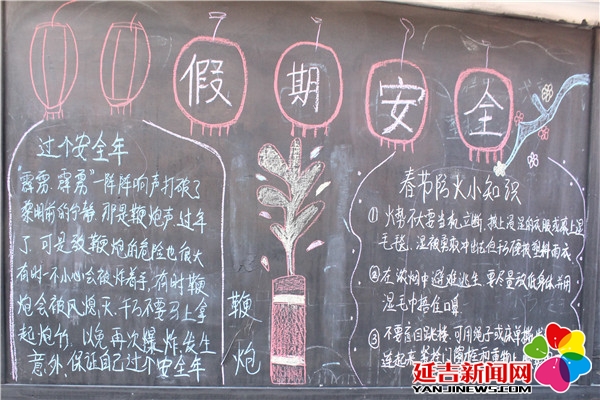 假期安全
过个安全年
“霹雳、霹雳”一阵阵响声打破了
黎明前的宁静,那是鞭炮声,过年
了,可是放鞭炮的危险也很大
有时一不小心会被炸着手,有时鞭
炮会被风熄灭,千万不要马上拿
起炮竹,以免再次爆炸,发生
意外,保证自己过个安全年
鞭
炮
春节防火小知识
① 火势不大要当机立断,披上浸湿的衣服或裹上湿
毛毯、湿被褥取冲出去但千万别披塑料雨衣
② 在浓烟中避难逃生,要尽量放低身体并用
湿毛巾捂住口鼻
③ 不要盲目跳楼,可用绳子或床单撕
连起来,紧拴
延吉新闻网
YANJINEWS.COM